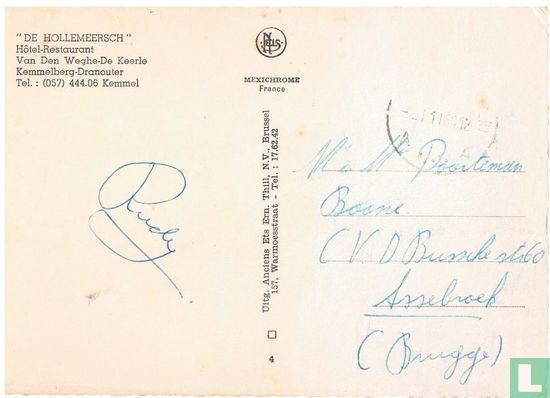 " DE HOLLEMEERSCH "
Hôtel-Restaurant
Van Den Weghe-De Keerle
Kemmelberg-Dranouter
Tel. : (057) 444.06 Kemmel
NELS
MEXICHROME
France
Uitg. Anciens Ets Ern. Thill, N.V., Brussel
157, Warmoesstraat - Tel. : 17.62.42
4
Rudy
Poorteman
Boone
(V. D. Bussche str 60
Assebroek
(Brugge)
LASTDODO